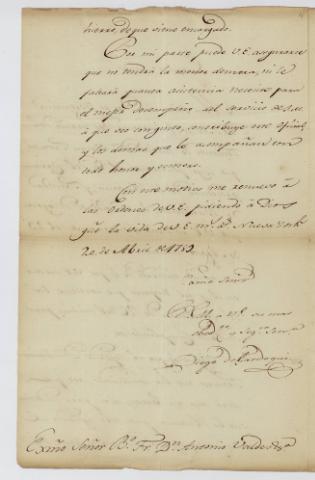 tierra, de que viene encargado.
Por mi parte puede V.E. asegurarse
que no tendrá la menor demora, ni le
faltará quanta asistencia necesite para
el mejor desempeño del servicio de S.M.
à que veo conjunto, contribuye este Oficial,
y los demas que le acompañan con
todo honor y esmero.
Con este motivo me renuevo à
las ordenes de V.E. pidiendo à Dios
gūe la vida de V.E. m.s a.s Nueva York
20 de Abril de 1789
Exmo Señor
B. L. M. a V.E. su mas
obed.te y Seg.o Serv.r
Diego de Gardoqui
Exm̃o Señor B.o Fr. Dn. Antonio Valdes &.a